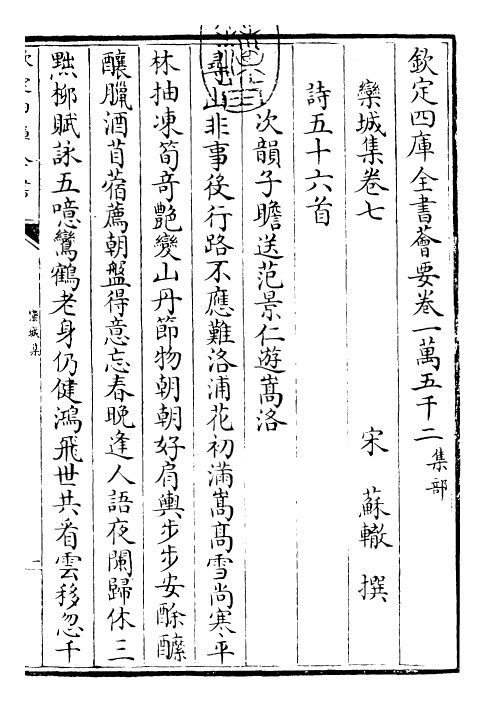 欽定四庫全書薈要卷一萬五千二 集部
欒城集卷七 宋 蘇轍 撰
詩五十六首
次韻子瞻送范景仁遊嵩洛
尋山非事役行路不應難洛浦花初滿嵩髙雪尚寒平
林抽凍筍奇艷變山丹節物朝朝好肩輿步步安酴醿
釀臘酒苜蓿薦朝盤得意忘春晚逢人語夜闌歸休三
黜柳賦詠五噫鸞鶴老身仍健鴻飛世共看雲移忽千
欒城集
一